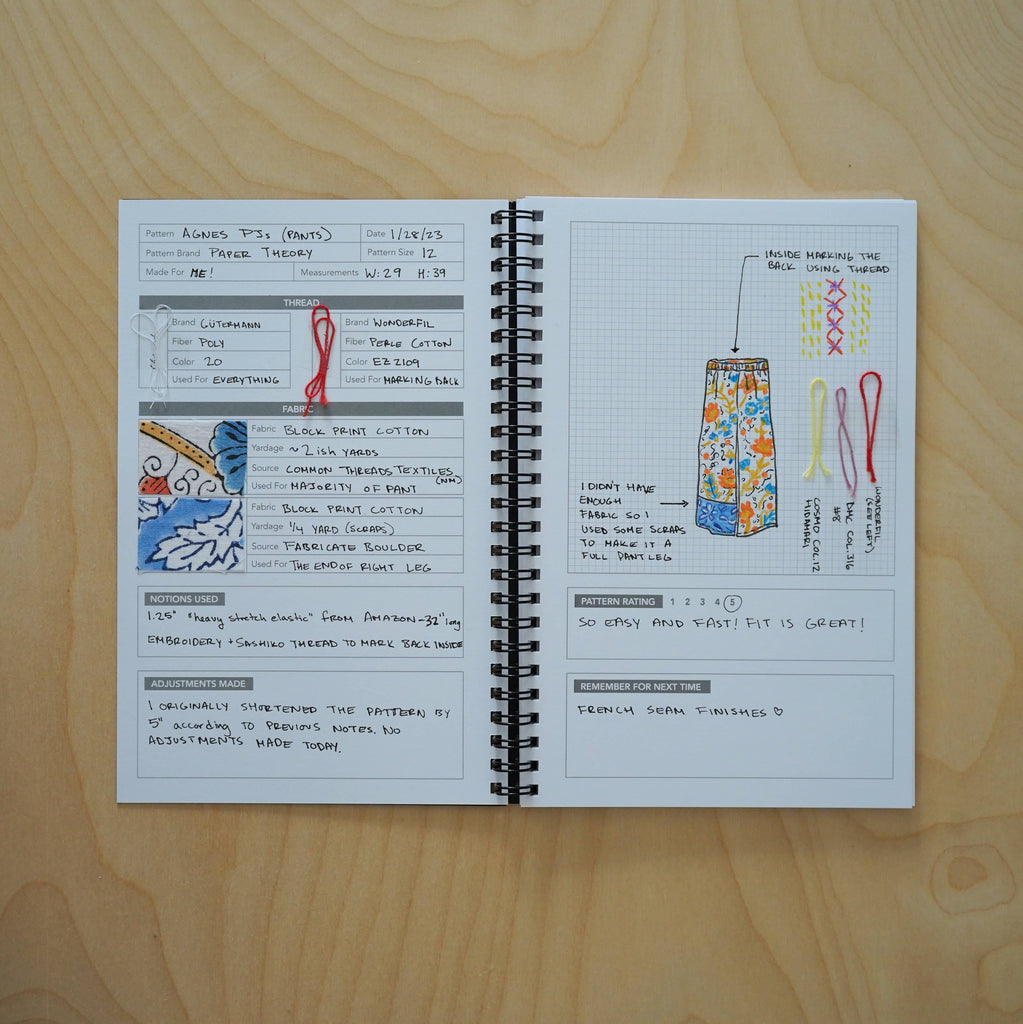 Pattern AGNES PJs (PANTS) Date 1/28/23
Pattern Brand PAPER THEORY Pattern Size 12
Made For ME! Measurements W: 29 H: 39
THREAD
Brand GÜTERMANN Brand WONDERFIL
Fiber POLY Fiber PERLE COTTON
Color 20 Color EZ 2109
Used For EVERYTHING Used For MARKING BACK
FABRIC
Fabric BLOCK PRINT COTTON
Yardage ~ 2 ish YARDS
Source COMMON THREADS TEXTILES (NM)
Used For MAJORITY OF PANT
Fabric BLOCK PRINT COTTON
Yardage 1/4 YARD (SCRAPS)
Source FABRICATE BOULDER
Used For THE END OF RIGHT LEG
NOTIONS USED
1.25" "heavy stretch elastic" FROM AMAZON - 32" long
EMBROIDERY + SASHIKO THREAD TO MARK BACK INSIDE
ADJUSTMENTS MADE
I ORIGINALLY SHORTENED THE PATTERN BY
5" according TO PREVIOUS NOTES. NO
ADJUSTMENTS MADE TODAY.
INSIDE MARKING THE
BACK USING THREAD
I DIDN'T HAVE
ENOUGH
FABRIC SO I
USED SOME SCRAPS
TO MAKE IT A
FULL PANT LEG
COSMO COL.12
HIDAMARI
DMC COL.316
#8
WONDERFIL
(SEE LEFT)
PATTERN RATING 1 2 3 4 5
SO EASY AND FAST! FIT IS GREAT!
REMEMBER FOR NEXT TIME
FRENCH SEAM FINISHES ♡